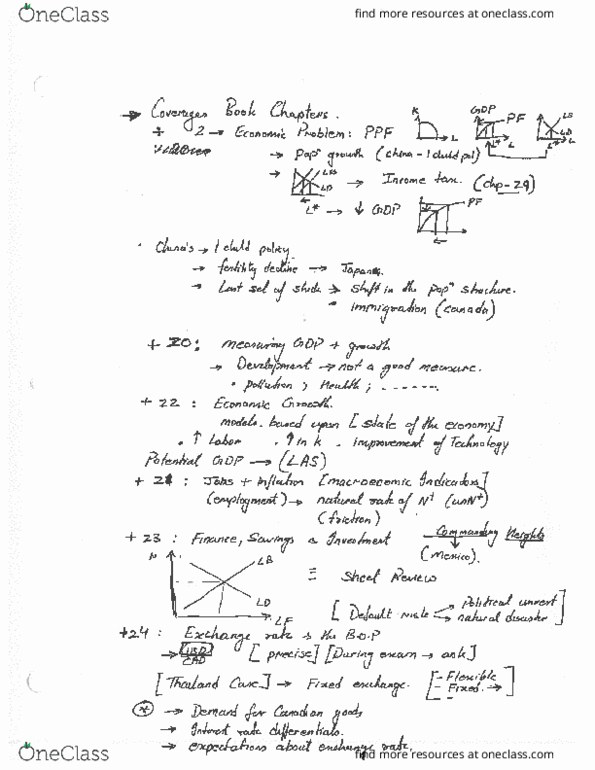 OneClass
find more resources at oneclass.com
→ Coverages Book Chapters.
+ 2 → Economic Problem: PPF
K L GDP PF L* L LS LD L
→ Popⁿ growth (china - 1 child pol)
→ LS LD L* → Income tax. (chp-29)
→ ↓ GDP PF
China's → 1 child policy.
→ fertility decline → Japanese.
→ Last set of → shift in the popⁿ structure.
immigration (canada)
+ 20: measuring GDP + growth
→ Development → not a good measure.
• pollution ; Health ; - - - - - - -.
+ 22 : Economic Growth.
models based upon [state of the economy]
• ↑ Labor • ↑ in k • improvement of Technology
Potential GDP → (LAS)
+ 21 : Jobs + Inflation [macroeconomic Indicators]
(employment) → natural rate of
(friction)
+ 23 : Finance, Savings & Investment
Commanding Heights
(Mexico).
LD LF
≡ Sheet Review
[Default risk → Political unrest
→ natural disaster]
+24 : Exchange rate & the B.O.P
→ USD/CAD [precise] [During exam → ask]
[Thailand Case] → Fixed exchange. [- Flexible
- Fixed. →]
* → Demand for Canadian goods
→ Interest rate differentials.
→ expectations about exchange rate.
OneClass
find more resources at oneclass.com